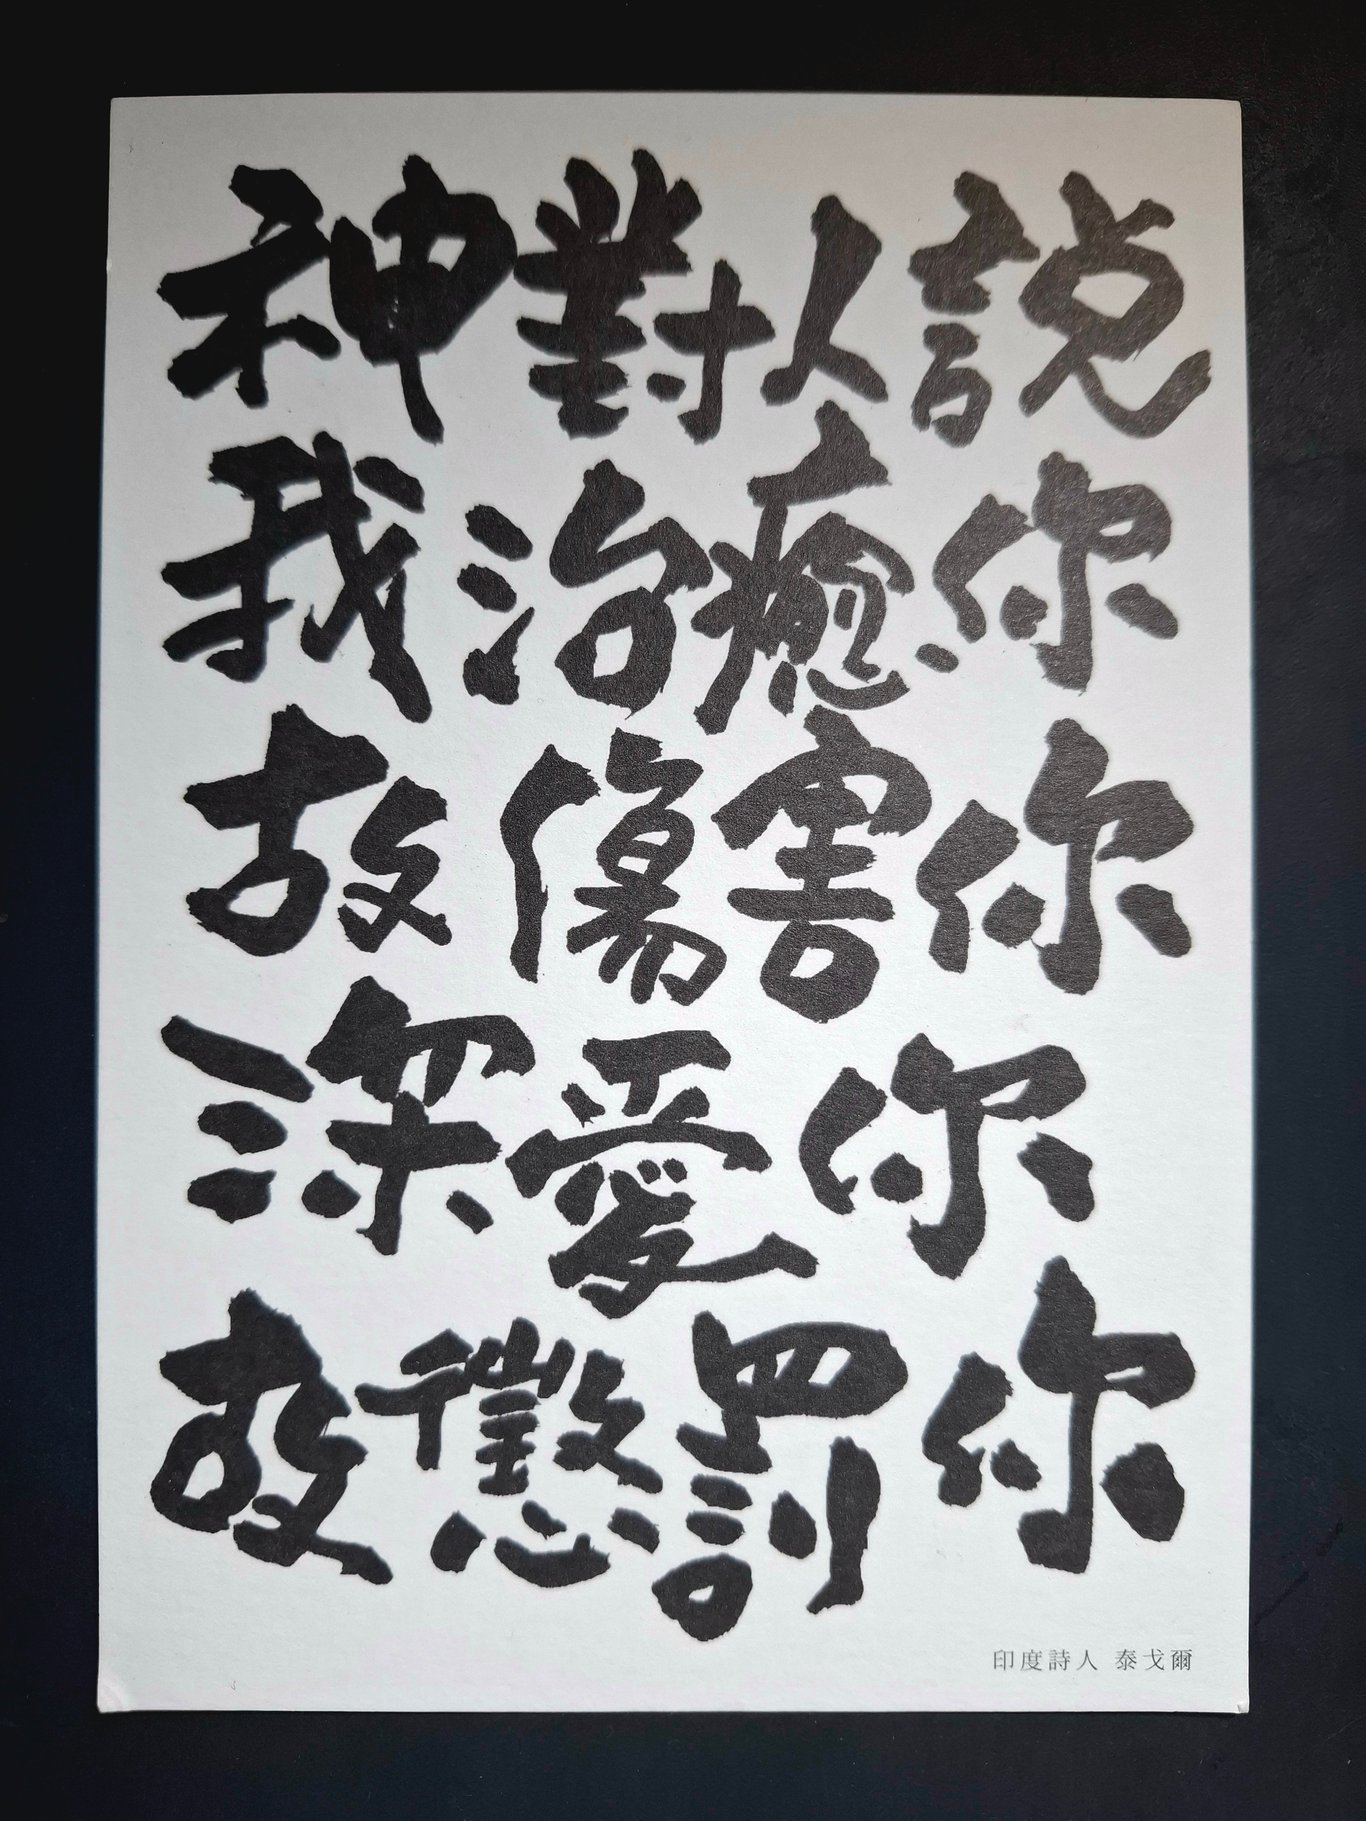 神對人說
我治癒你
故傷害你
深愛你
故懲罰你
印度詩人 泰戈爾